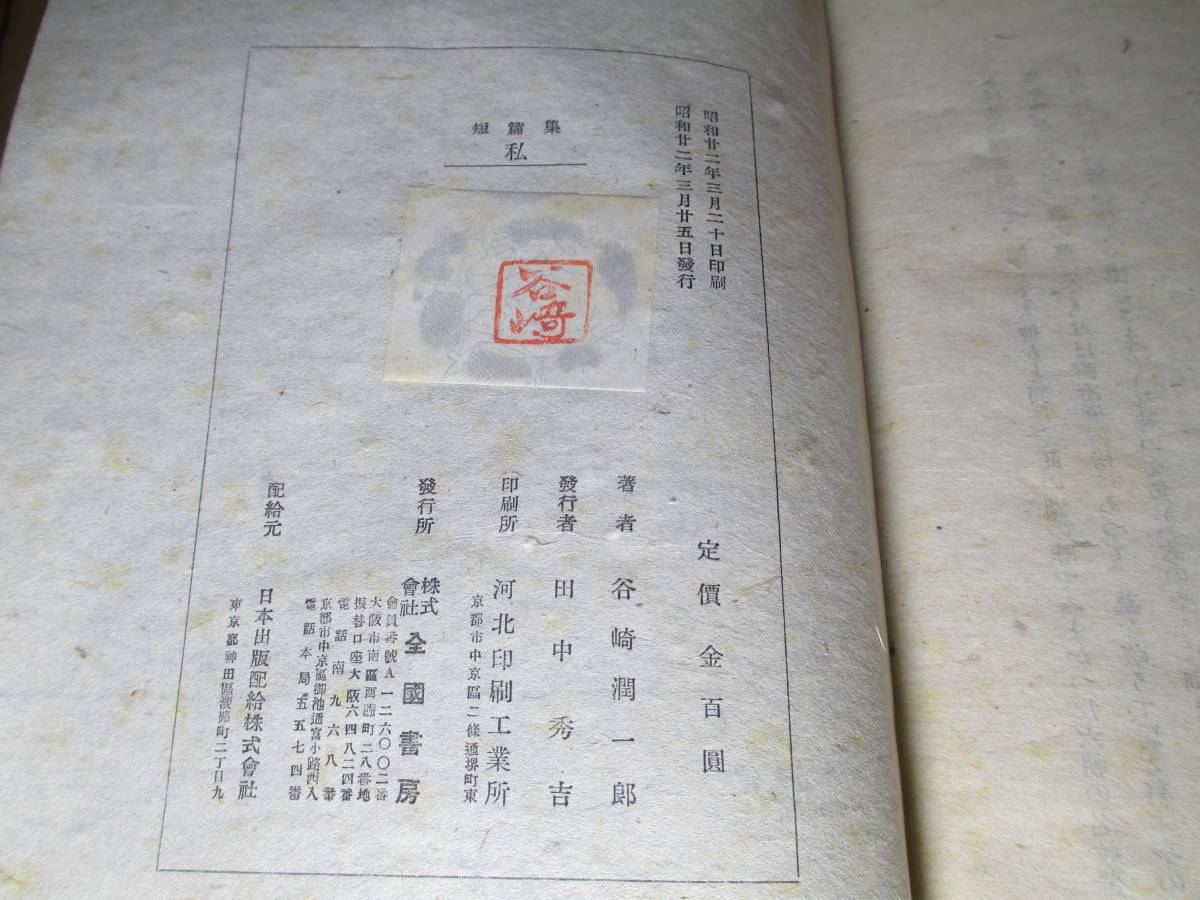 昭和廿二年三月二十日印刷
昭和廿二年三月廿五日發行
短篇集
私
谷崎
定價金百圓
著者 谷崎潤一郎
發行者 田中秀吉
印刷所 河北印刷工業所
京都市中京區二條通堺町東
發行所 株式會社 全國書房
會員番號A一二六〇〇二番
大阪市南區西賑町二八番地
振替口座大阪六四八二四番
電話南九六八番
京都市中京區御池通富小路西入
電話本局五五七四番
配給元 日本出版配給株式會社
東京都神田區淡路町二丁目九